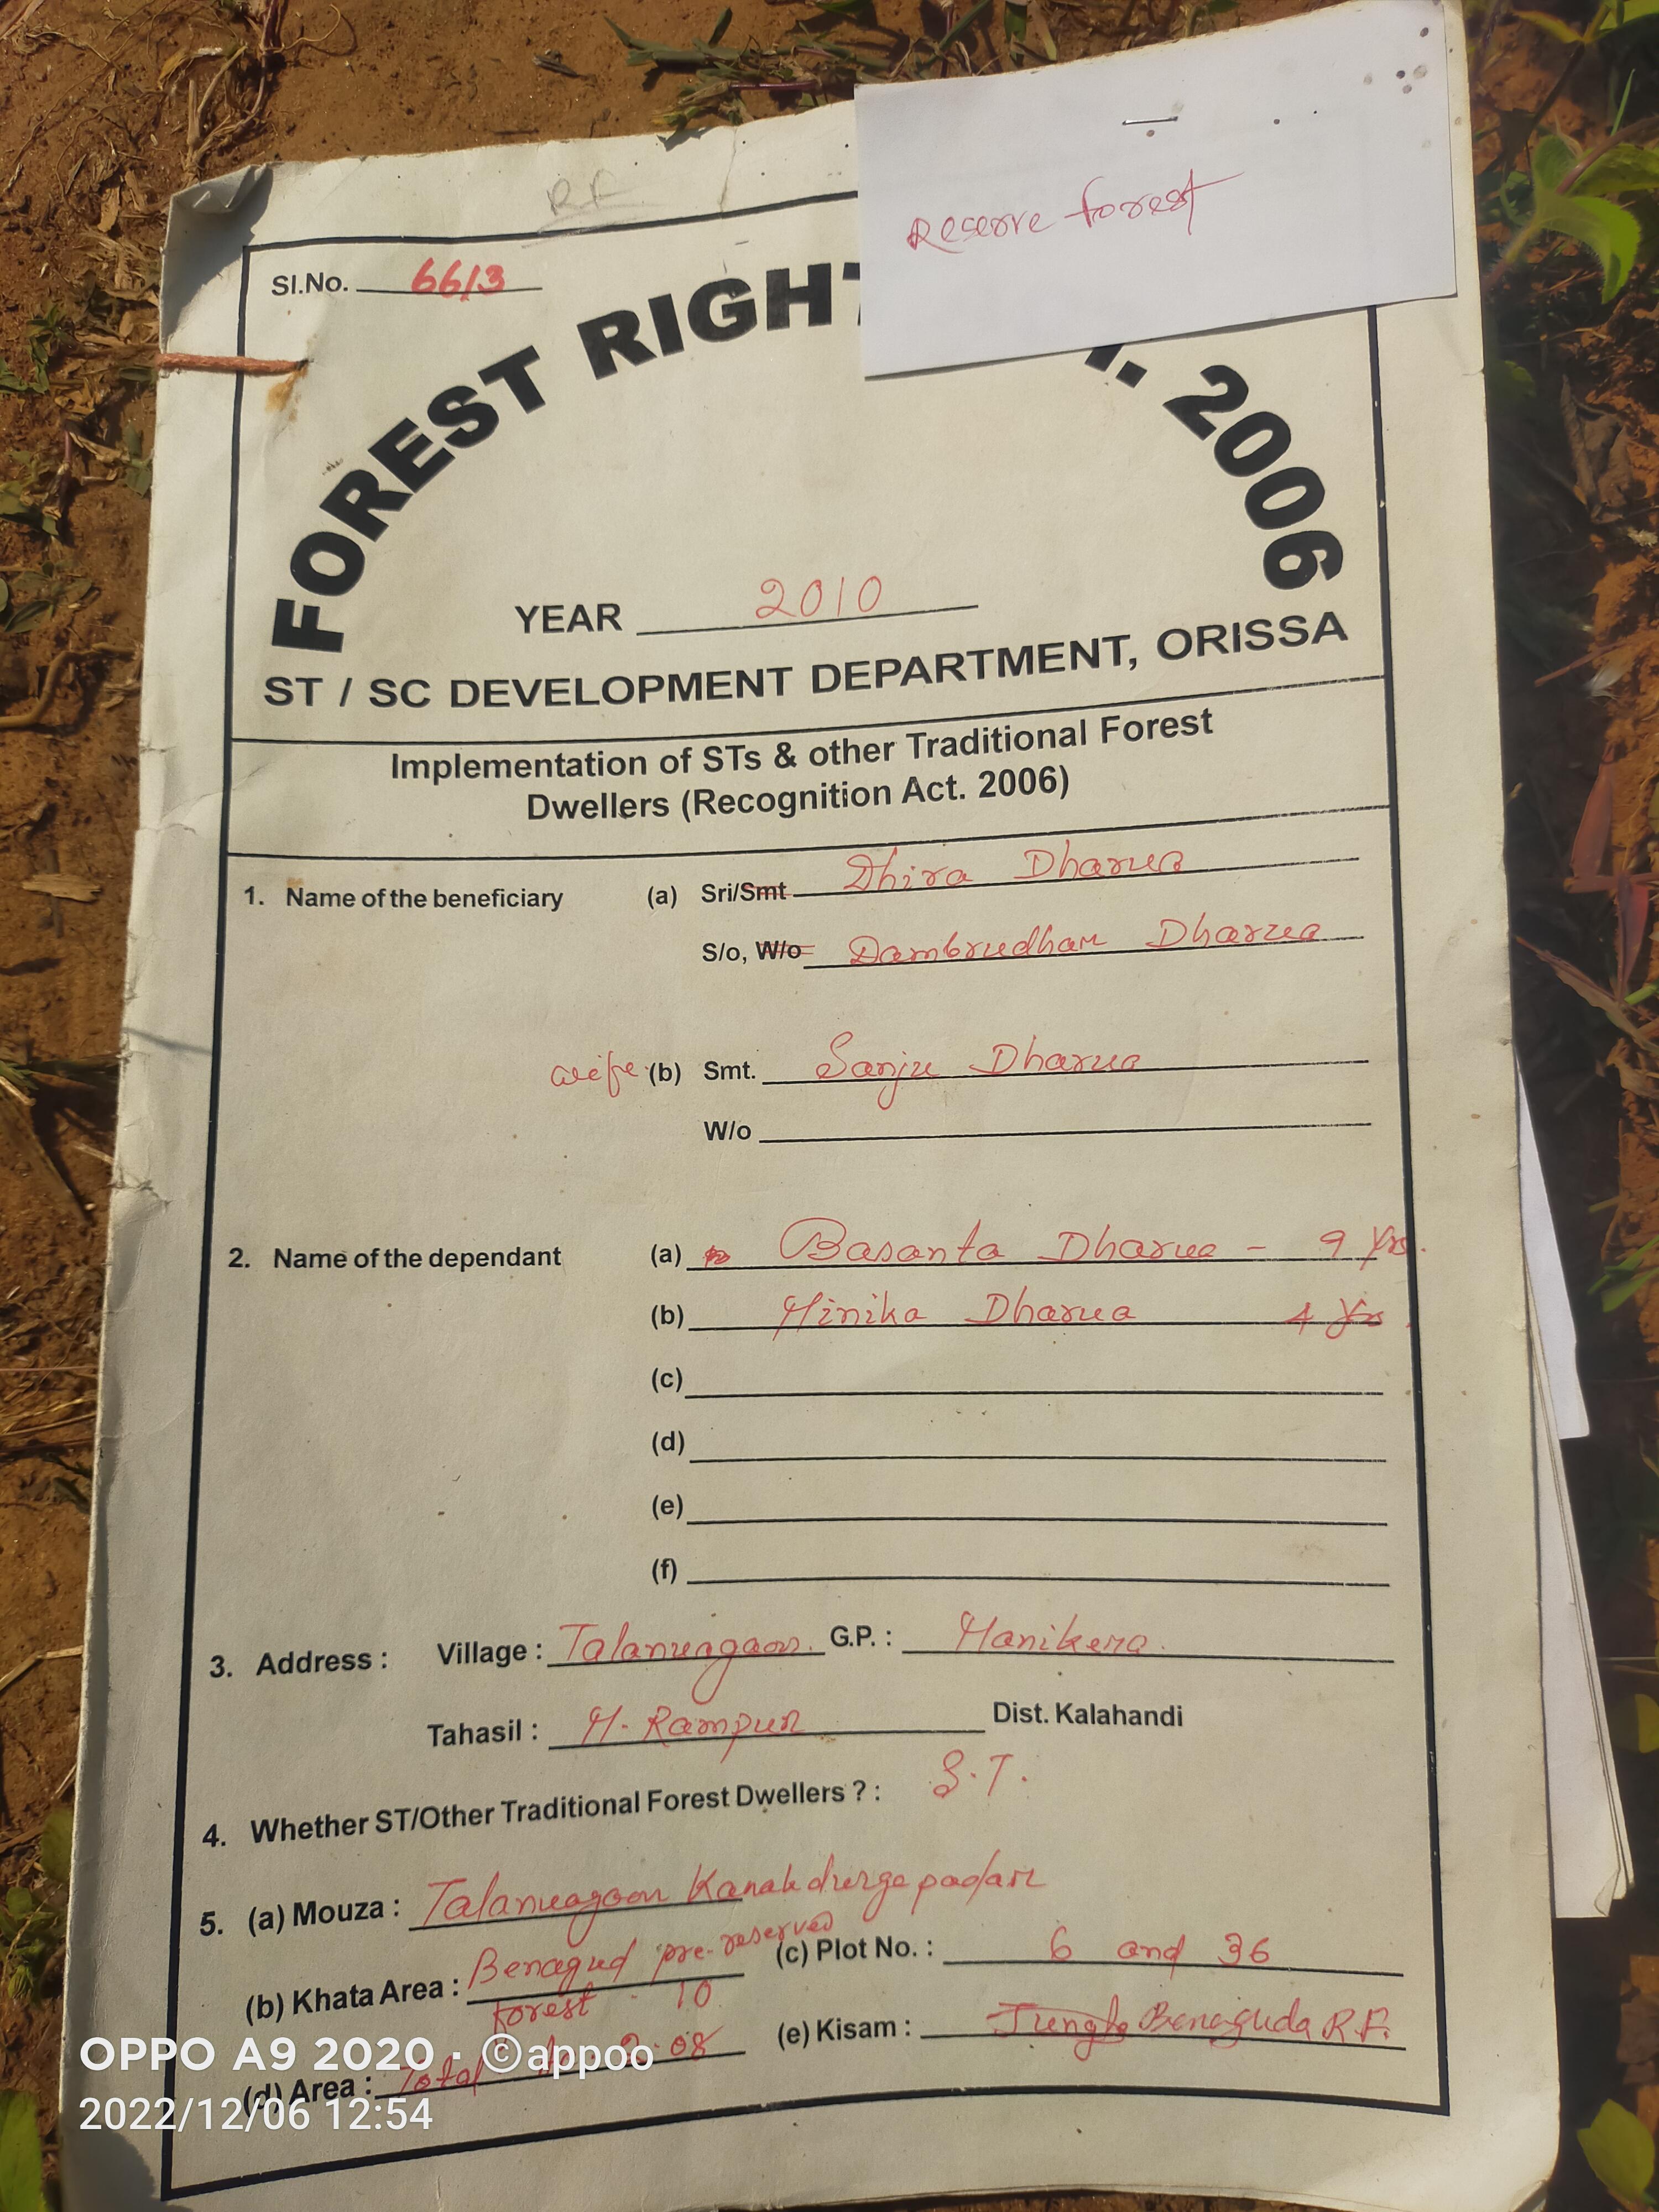 RF
Reserve forest
Sl.No. 66/3
FOREST RIGHT . 2006
YEAR 2010
ST / SC DEVELOPMENT DEPARTMENT, ORISSA
Implementation of STs & other Traditional Forest
Dwellers (Recognition Act. 2006)
1. Name of the beneficiary (a) Sri/Smt Dhira Dharua
S/o, W/o Dambrudhar Dharua
wife (b) Smt. Sanju Dharua
W/o
2. Name of the dependant (a) Basanta Dharua - 9 Yrs.
(b) Minika Dharua 4 Yrs.
(c)
(d)
(e)
(f)
3. Address : Village : Talanuagaon. G.P. : Manikera.
Tahasil : M. Rampur Dist. Kalahandi
4. Whether ST/Other Traditional Forest Dwellers ? : S.T.
5. (a) Mouza : Talanuagaon Kanakdurgapadar
(b) Khata Area : Benagud pre-reserved (c) Plot No. : 6 and 36
forest - 10
(d) Area : Total 2.08 (e) Kisam : Jungle Benaguda R.F.
OPPO A9 2020 · ©appoo
2022/12/06 12:54